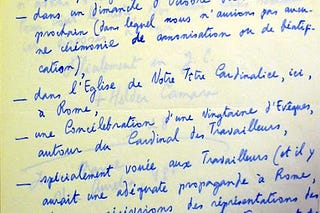 — dans un dimanche d'Octobre
prochain (dans lequel nous n'aurions pas aucu-
ne cérémonie de canonisation ou de béatifi-
cation),
— dans l'Eglise de Votre Titre Cardinalice, ici,
à Rome,
— une Concélébration d'une vingtaine d'Evêques,
autour du Cardinal des Travailleurs,
— spécialement vouée aux Travailleurs (et il y
aurait une adéquate propagande à Rome,
des représentations des